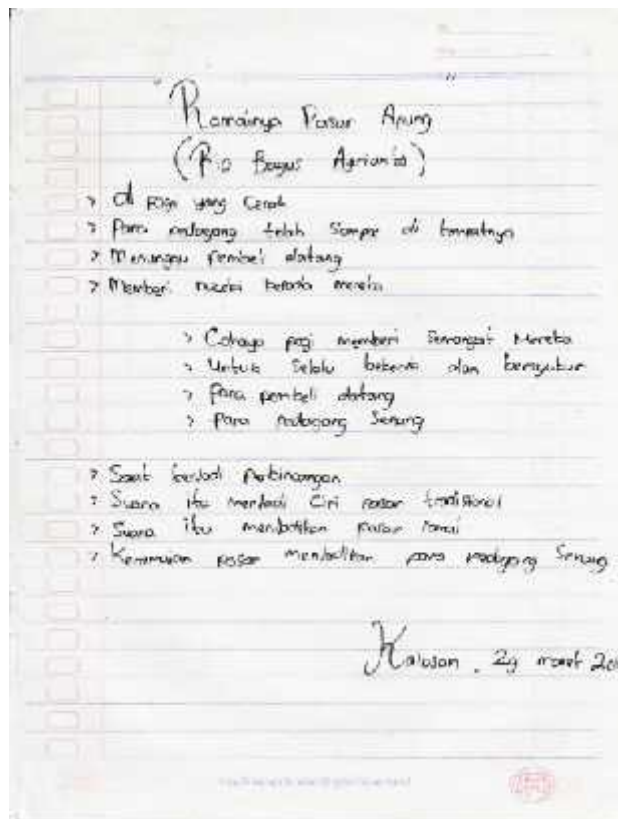 "Ramainya Pasar Apung"
(Rio Bagus Aprianto)
> di pagi yang Cerah
> Para pedagang telah Sampai di tempatnya
> Menunggu Pembeli datang
> Memberi rezeki kepada mereka
> Cahaya pagi memberi Semangat Mereka
> Untuk Selalu bekerja dan bersyukur
> Para pembeli datang
> Para Pedagang Senang
> Saat terjadi Perbincangan
> Suara itu menjadi Ciri pasar tradisional
> Suara itu menjadikan pasar ramai
> Keramaian pasar menjadikan para pedagang Senang
Kalasan, 29 maret 20